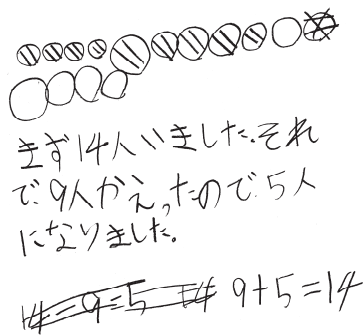 まず14人いました。それ
で、9人かえったので、5人
になりました。
9+5=14